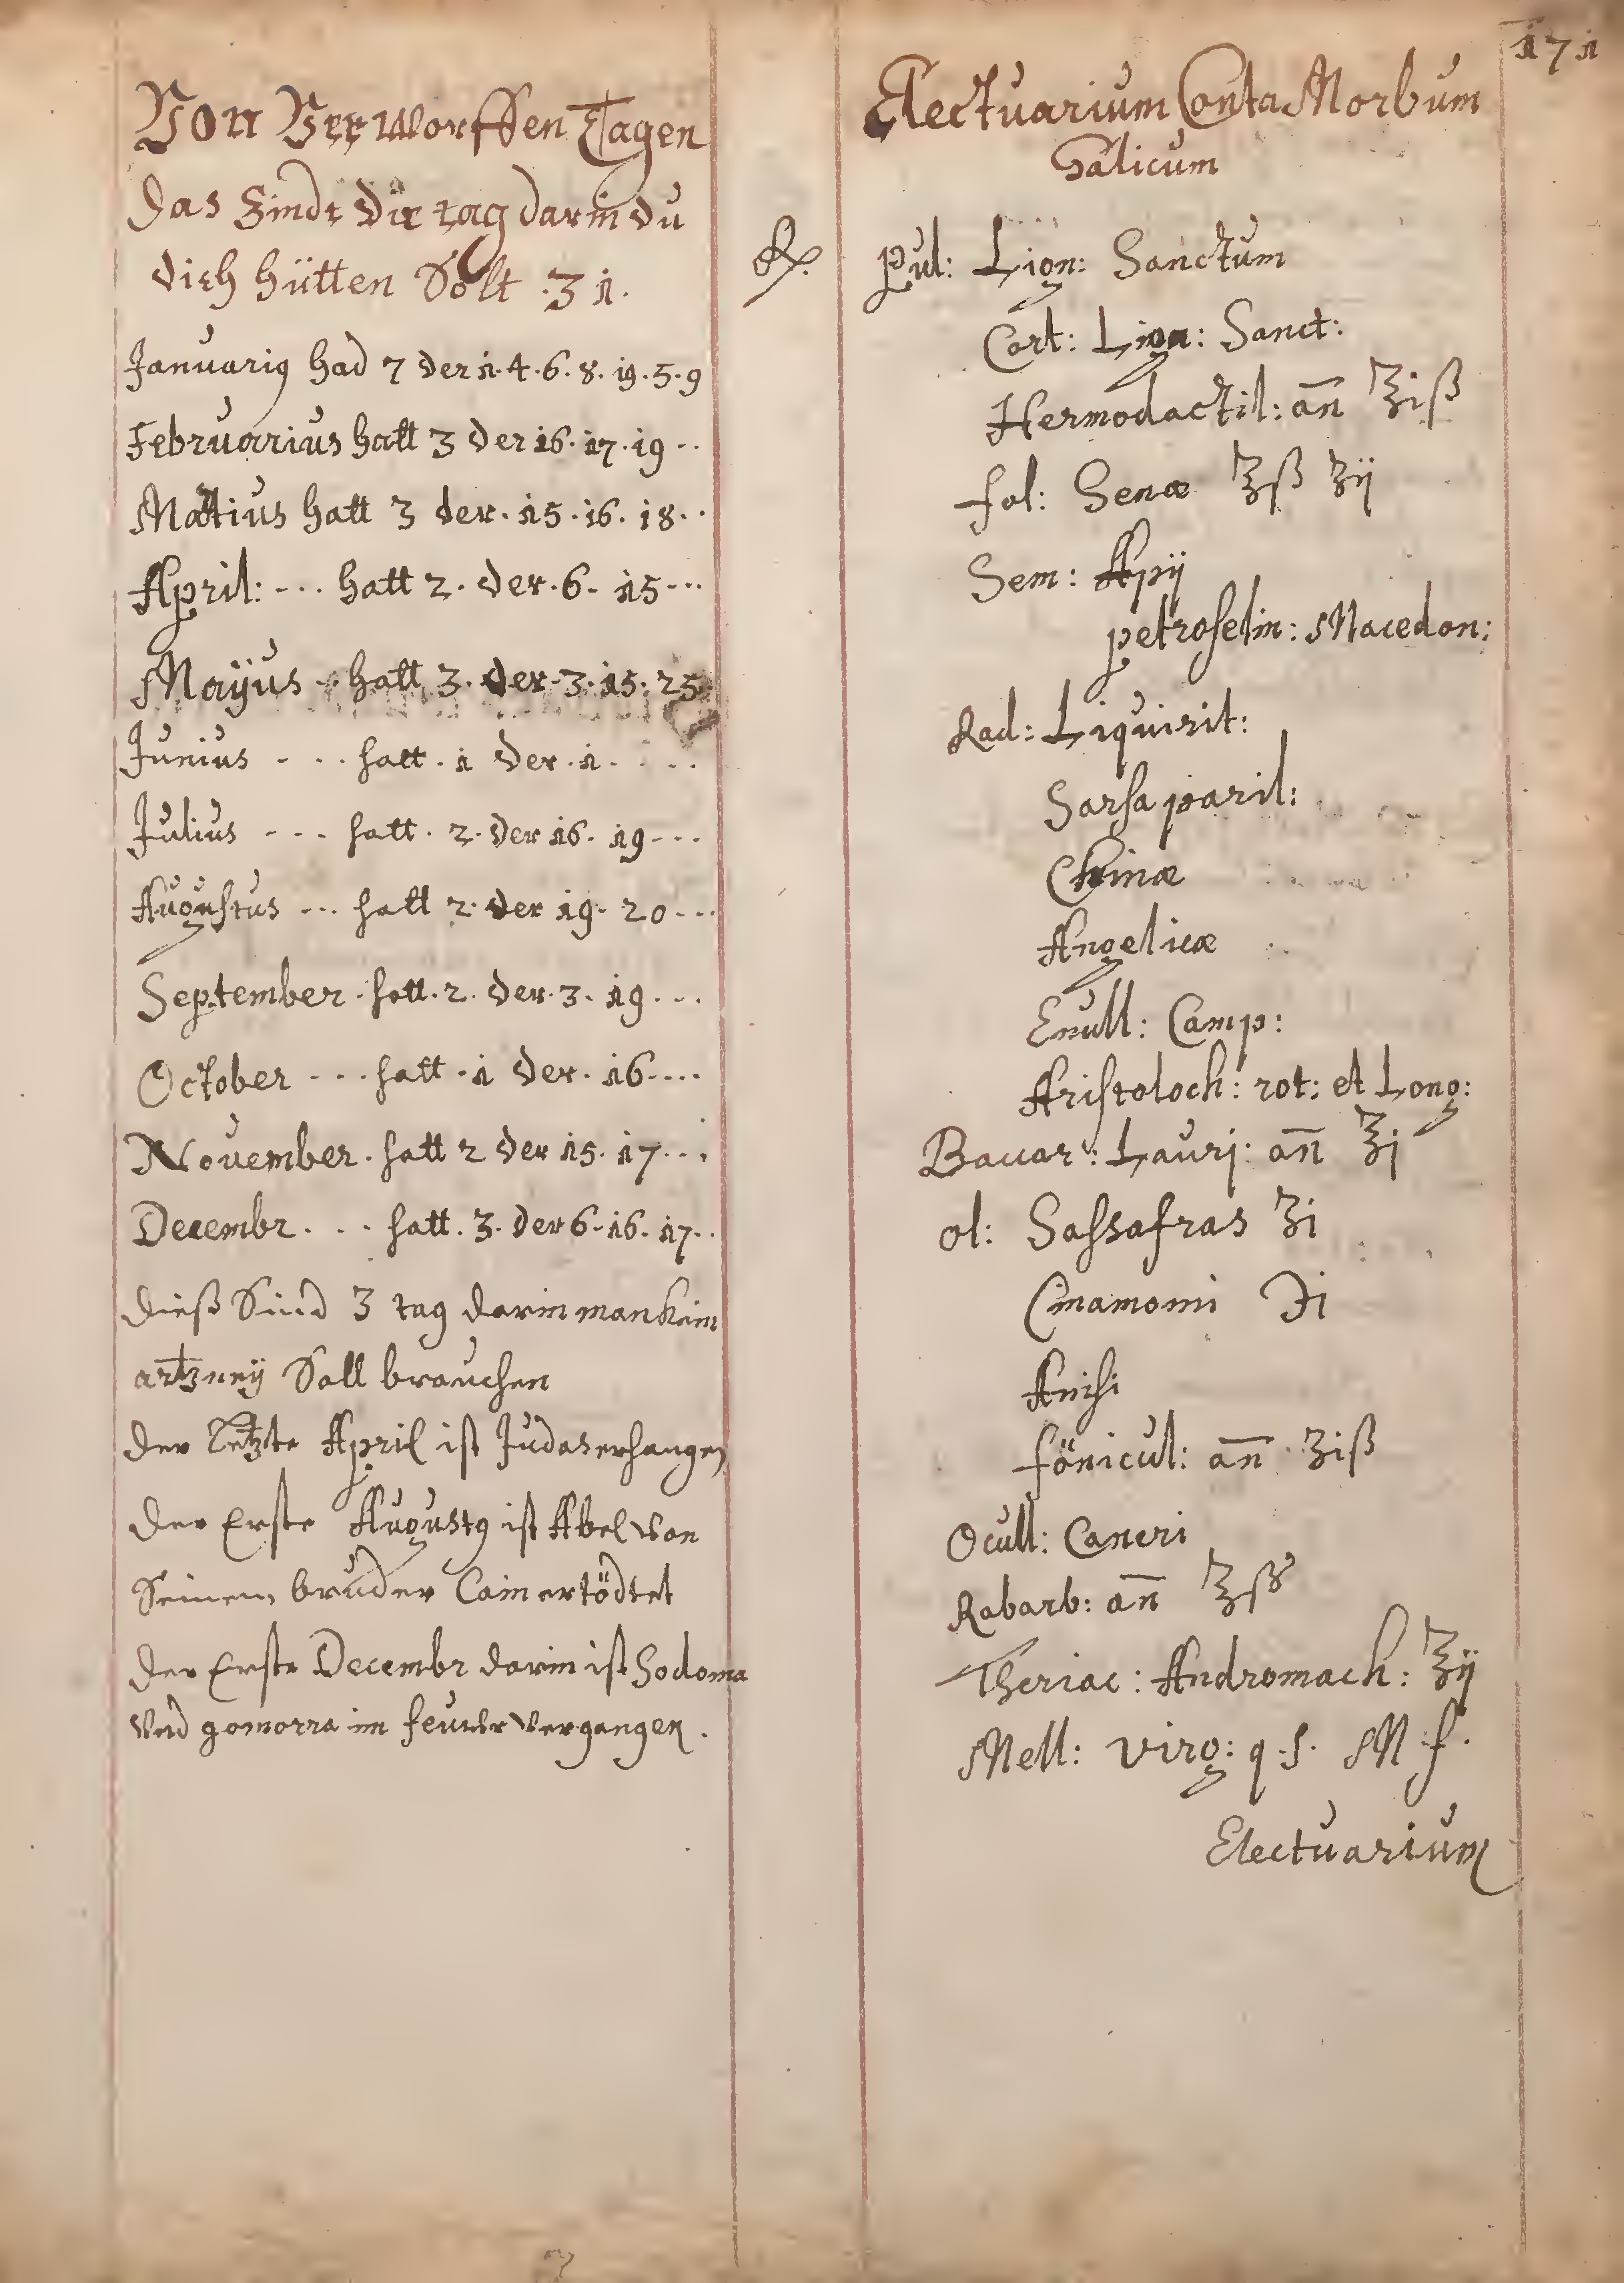 171
Von Verworffen Tagen
das Sindt die tag darin du
dich hütten Solt .31.
Januariꝰ had 7 der 1.4.6.8.19.5.9
Februarius hatt 3 der 16.17.19..
Matius hatt 3 der.15.16.18..
April: ... hatt 2. der.6. 15...
Mayus .. hatt 3. der.3.15.25.
Junius ... hatt.1 der.1.....
Julius ... hatt. 2. der 16. 19...
Augustus ... hatt 2. der 19. 20...
September. hatt.2. der.3. 19...
October ... hatt.1 der. 16....
November. hatt 2 der 15. 17...
Decembr... hatt.3. der 6.16.17..
dieß Sind 3 tag darin man kein
artzneÿ Soll brauchen
der letzte April ist Judas erhangen
der Erste Augustꝰ ist Abel von
Seinem bruder Cain ertödtet
der Erste Decembr darin ist Sodoma
vnd gomorra im feuwr vergangen.
Electuarium Conta Morbum
Galicum
℞. Pul: Lign: Sanctum
Cort: Lign: Sanct:
Hermodactil: an̅ ℥iß
fol: Senæ ℥ß ʒij
Sem: Apij
petroselin: Macedon:
Rad: Liquirit:
Sarsaparil:
Chinæ
Angelicæ
Enull: Camp:
Aristoloch: rot: et Long:
Baccar: Laurj: an̅ ℥j
ol: Sassafras ʒi
Cinamomi ℈i
Anisi
fönicul: an̅ ʒiß
Ocull: Cancri
Rabarb: an̅ ℥ß
Theriac: Andromach: ℥ij
Mell: virg: q.s. M.f.
Electuarium